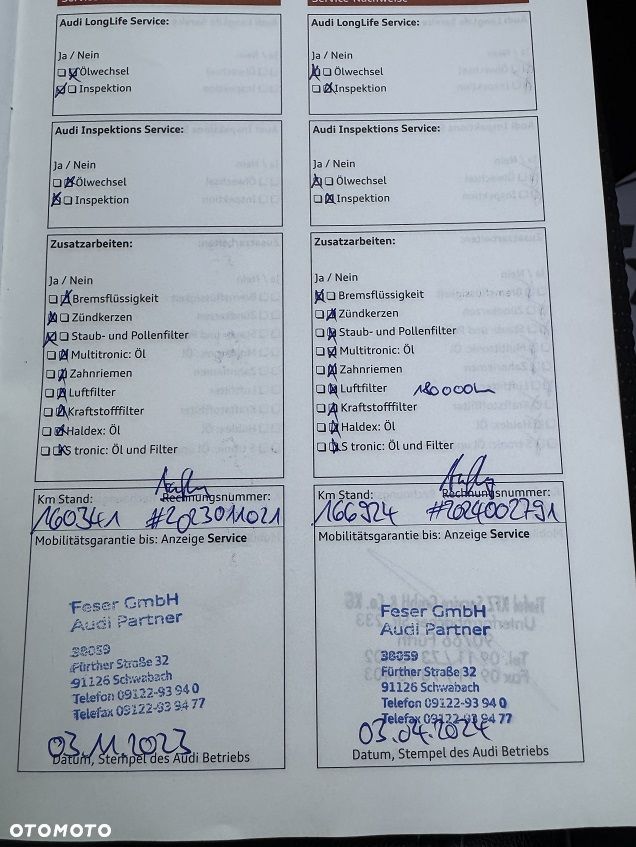 Audi LongLife Service:
Ja / Nein
Ölwechsel
Inspektion
Audi Inspektions Service:
Ja / Nein
Ölwechsel
Inspektion
Zusatzarbeiten:
Ja / Nein
Bremsflüssigkeit
Zündkerzen
Staub- und Pollenfilter
Multitronic: Öl
Zahnriemen
Luftfilter
Kraftstofffilter
Haldex: Öl
S tronic: Öl und Filter
Km Stand: Rechnungsnummer:
160341 #2023011021
Mobilitätsgarantie bis: Anzeige Service
Feser GmbH
Audi Partner
38059
Fürther Straße 32
91126 Schwabach
Telefon 09122-93 94 0
Telefax 09122-93 94 77
03.11.2023
Datum, Stempel des Audi Betriebs
Audi LongLife Service:
Ja / Nein
Ölwechsel
Inspektion
Audi Inspektions Service:
Ja / Nein
Ölwechsel
Inspektion
Zusatzarbeiten:
Ja / Nein
Bremsflüssigkeit
Zündkerzen
Staub- und Pollenfilter
Multitronic: Öl
Zahnriemen
Luftfilter 180000km
Kraftstofffilter
Haldex: Öl
S tronic: Öl und Filter
Km Stand: Rechnungsnummer:
166924 #2024002791
Mobilitätsgarantie bis: Anzeige Service
Feser GmbH
Audi Partner
38059
Fürther Straße 32
91126 Schwabach
Telefon 09122-93 94 0
Telefax 09122-93 94 77
03.04.2024
Datum, Stempel des Audi Betriebs
OTOMOTO